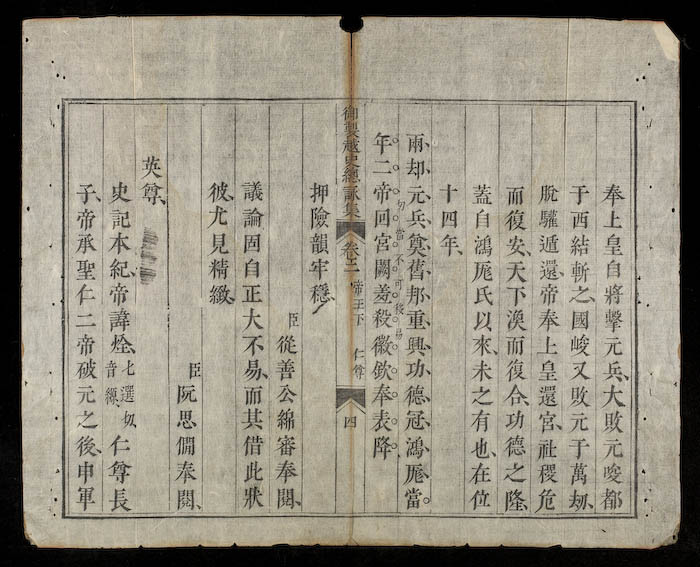 奉上皇自將擊元兵、大敗元唆都
于西結斬之、國峻又敗元于萬刼、
脫驩遁還、帝奉上皇還宮、社稷危
而復安、天下渙而復合、功德之隆、
蓋自鴻厖氏以來、未之有也、在位
十四年、
兩却元兵奠舊邦重興功德冠鴻厖當
年二帝回宮闕羞殺徽欽奉表降
勻當不可移易
押險韻牢穩
臣從善公綿審奉閱、
議論固自正大不易、而其借此狀
彼尤見精緻、
臣阮思僩奉閱、
英尊、
史記本紀、帝諱烇、七選切、音縓、仁尊長
子、帝承聖仁二帝破元之後、申軍
御製越史總詠集 卷二 帝王下 仁尊 四